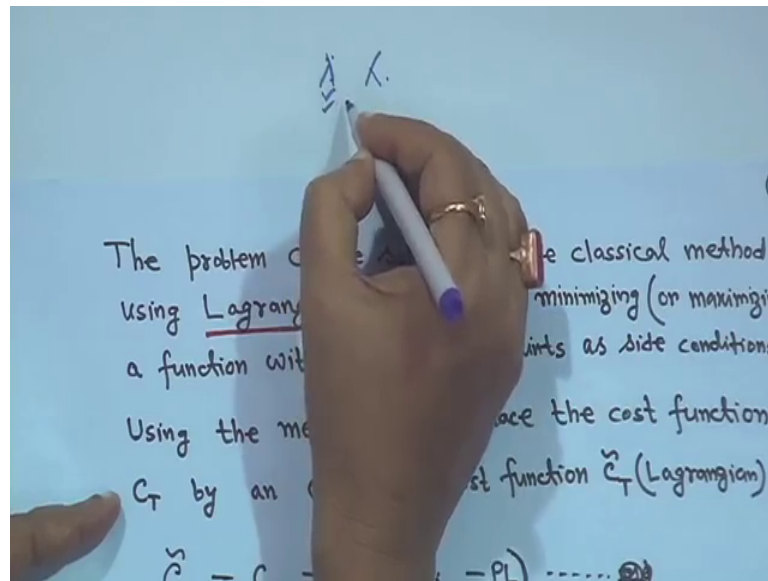 λ λ.
The problem c e classical method
using Lagrang minimizing (or maximizi
a function wit ints as side condition
Using the me ace the cost function
C_T by an st function C̃_T (Lagrangian)
C̃ = C - PL) ......